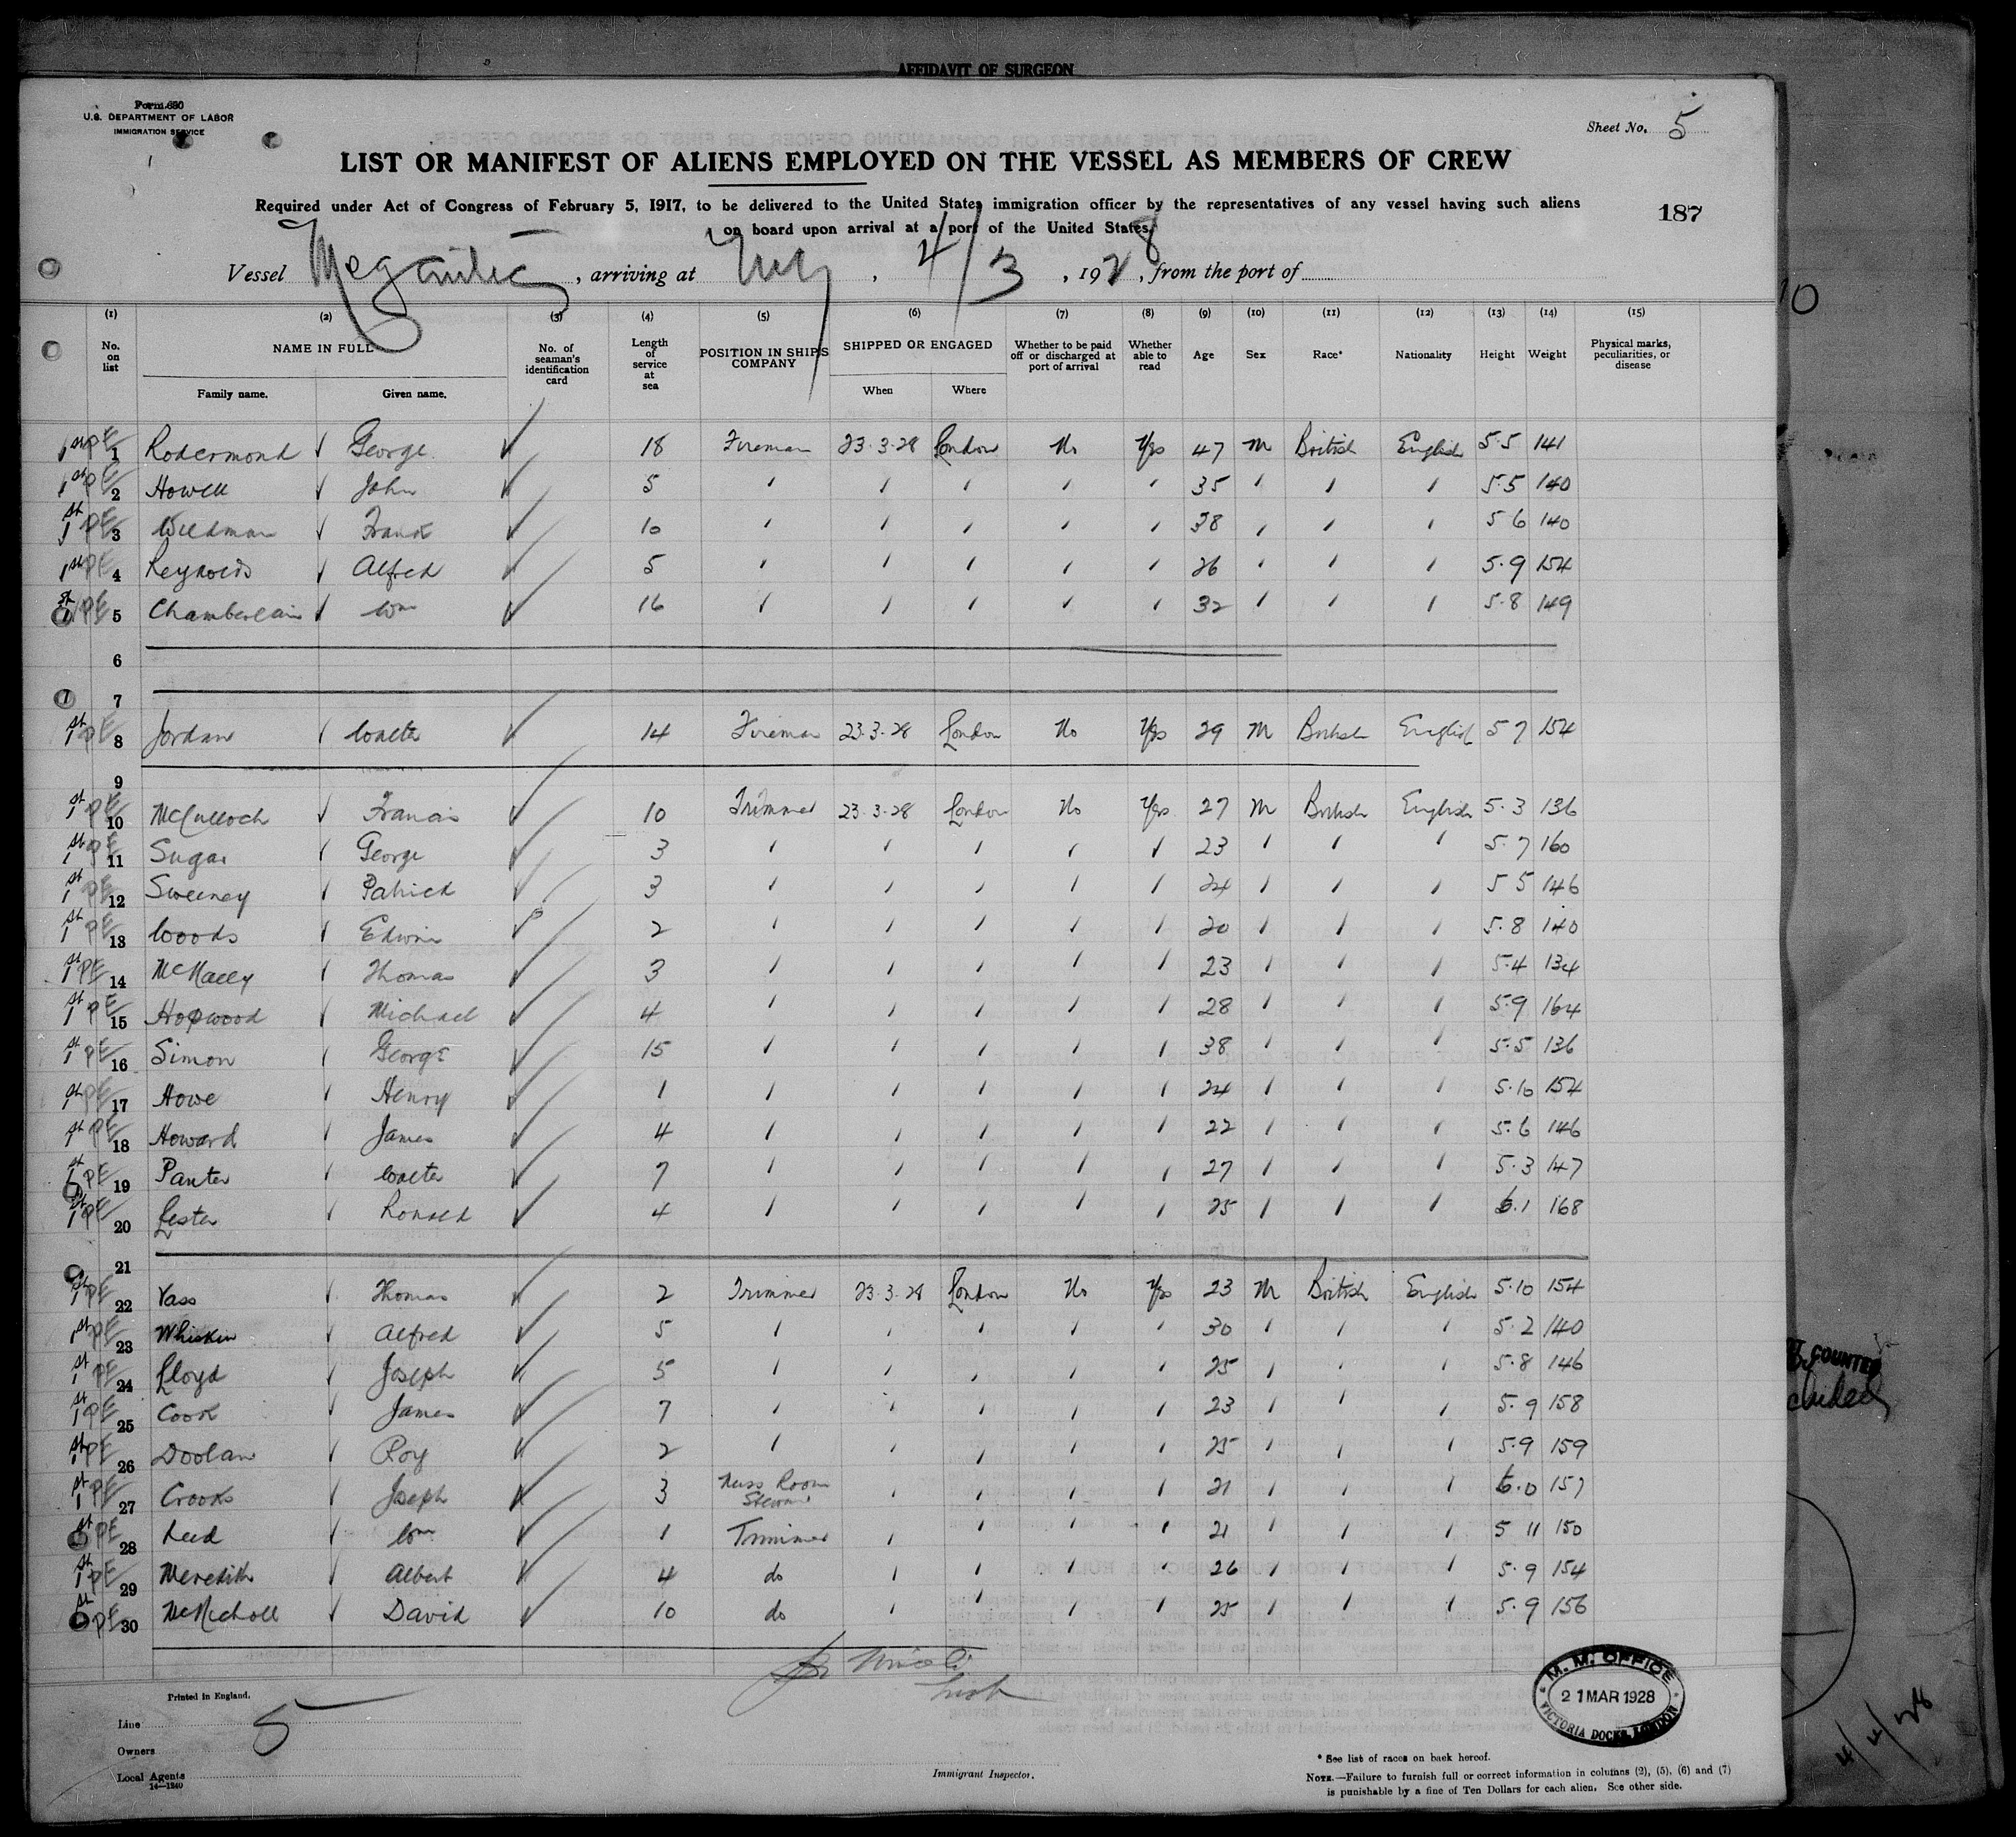 AFFIDAVIT OF SURGEON
Form 680
U.S. DEPARTMENT OF LABOR
IMMIGRATION SERVICE
Sheet No. 5
LIST OR MANIFEST OF ALIENS EMPLOYED ON THE VESSEL AS MEMBERS OF CREW
Required under Act of Congress of February 5, 1917, to be delivered to the United States immigration officer by the representatives of any vessel having such aliens
on board upon arrival at a port of the United States.
187
Vessel Megantic, arriving at NY, 4/3, 1928, from the port of
(1) (2) (3) (4) (5) (6) (7) (8) (9) (10) (11) (12) (13) (14) (15)
No. on list NAME IN FULL Family name. Given name. No. of seaman's identification card Length of service at sea POSITION IN SHIP'S COMPANY SHIPPED OR ENGAGED When Where Whether to be paid off or discharged at port of arrival Whether able to read Age Sex Race* Nationality Height Weight Physical marks, peculiarities, or disease
1st PE 1 Rodermond George 18 Fireman 23.3.28 London No Yes 47 M British English 5.5 141
1st PE 2 Howell John 5 35 5.5 140
1st PE 3 Frank 10 38 5 6 140
1st PE 4 Reynolds Alfred 5 26 5.9 154
1st PE 5 Chamberlain Wm 16 32 5.8 149
6
7
1st PE 8 Jordan Walter 14 Fireman 23.3.28 London No Yes 29 M British English 5 7 154
9
1st PE 10 McCulloch Francis 10 Trimmer 23.3.28 London No Yes 27 M British English 5.3 136
1st PE 11 Sugar George 3 23 5.7 160
1st PE 12 Sweeney Patrick 3 24 5 5 146
1st PE 13 Woods Edwin 2 20 5.8 140
1st PE 14 McNally Thomas 3 23 5.4 134
1st PE 15 Hopwood Michael 4 28 5.9 164
1st PE 16 Simon George 15 38 5.5 136
1st PE 17 Howe Henry 1 24 5.10 154
1st PE 18 Howard James 4 22 5.6 146
1st PE 19 Panter Walter 7 27 5.3 147
1st PE 20 Lester Ronald 4 25 6.1 168
21
1st PE 22 Vass Thomas 2 Trimmer 23.3.28 London No Yes 23 M British English 5.10 154
1st PE 23 Whiskin Alfred 5 30 5.2 140
1st PE 24 Lloyd Joseph 5 25 5.8 146
1st PE 25 Cook James 7 23 5.9 158
1st PE 26 Doolan Roy 2 25 5.9 159
1st PE 27 Crooks Joseph 3 Mess Room Steward 21 6.0 157
1st PE 28 Reed Wm 1 Trimmer 21 5 11 150
1st PE 29 Meredith Albert 4 do 26 5.9 154
1st PE 30 McNicholl David 10 do 25 5.9 156
Printed in England.
Line
5
Owners
Local Agents
14—1240
Immigrant Inspector.
M. M. OFFICE
21 MAR 1928
VICTORIA DOCKS, LONDON
* See list of races on back hereof.
NOTE.—Failure to furnish full or correct information in columns (2), (5), (6) and (7)
is punishable by a fine of Ten Dollars for each alien. See other side.
COUNTER
4/4/28